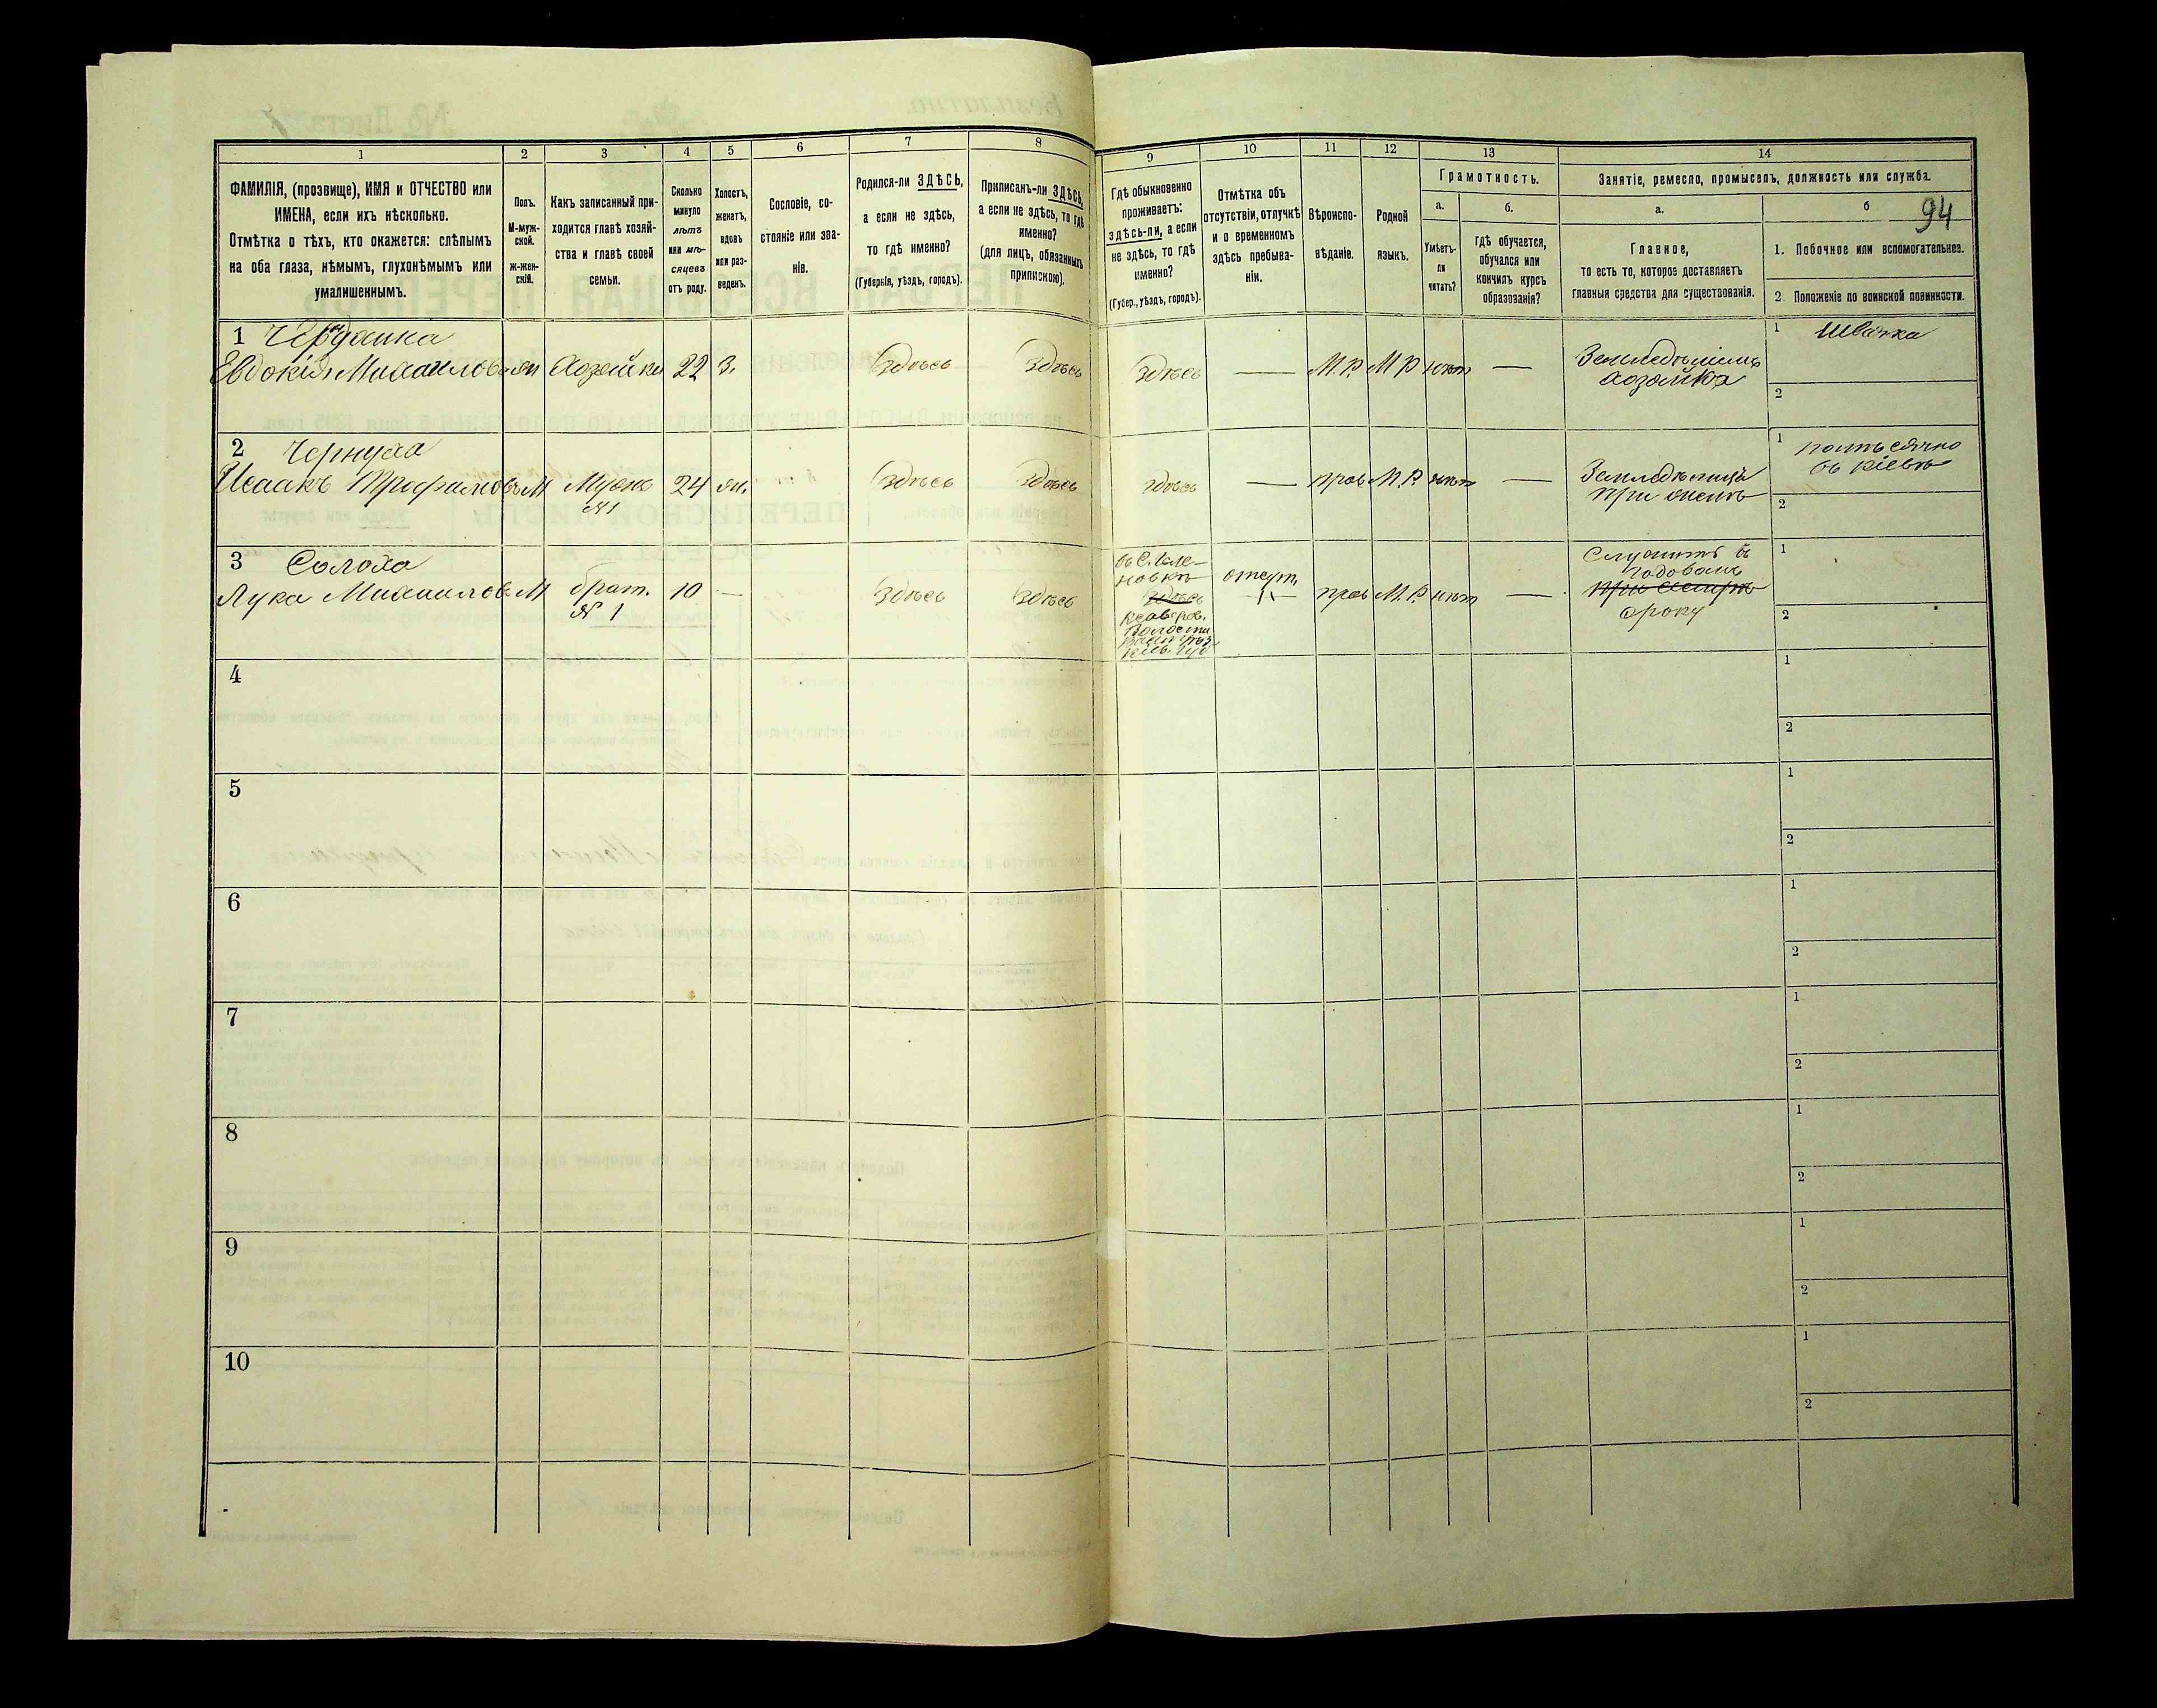 1
2
3
4
5
6
7
8
9
10
11
12
13
14
ФАМИЛІЯ, (прозвище), ИМЯ и ОТЧЕСТВО или
ИМЕНА, если ихъ нѣсколько.
Отмѣтка о тѣхъ, кто окажется: слѣпымъ
на оба глаза, нѣмымъ, глухонѣмымъ или
умалишеннымъ.
Полъ.
М-муж-
ской.
ж-жен-
скій.
Какъ записанный при-
ходится главѣ хозяй-
ства и главѣ своей
семьи.
Сколько
минуло
лѣтъ
или мѣ-
сяцевъ
отъ роду.
Холостъ,
женатъ,
вдовъ
или раз-
веденъ.
Сословіе, со-
стояніе или зва-
ніе.
Родился-ли ЗДѢСЬ,
а если не здѣсь,
то гдѣ именно?
(Губернія, уѣздъ, городъ).
Приписанъ-ли ЗДѢСЬ,
а если не здѣсь, то гдѣ
именно?
(для лицъ, обязанныхъ
припискою).
Гдѣ обыкновенно
проживаетъ:
здѣсь-ли, а если
не здѣсь, то гдѣ
именно?
(Губер., уѣздъ, городъ).
Отмѣтка объ
отсутствіи, отлучкѣ
и о временномъ
здѣсь пребыва-
ніи.
Вѣроиспо-
вѣданіе.
Родной
языкъ.
Грамотность.
а.
б.
Умѣетъ-
ли
читать?
гдѣ обучается,
обучался или
кончилъ курсъ
образованія?
Занятіе, ремесло, промыселъ, должность или служба.
а.
б
94
Главное,
то есть то, которое доставляетъ
главныя средства для существованія.
1. Побочное или вспомогательное.
2 Положеніе по воинской повинности.
1
Евдокія Михаилова жи Хозяйка 22 З. Здѣсь Здѣсь Здѣсь — М.Р. М Р нѣт —
хозяйка
1 Швачка
2
2 Чернуха
Исаакъ Трофимовъ М Мужъ 24 ж. Здѣсь Здѣсь здѣсь — прав М.Р. нѣт —
№1
при женѣ
1 помѣсячно
въ Кіевѣ
2
3 Солоха
Лука Михаиловъ М брат. 10 — Здѣсь Здѣсь
№ 1
здѣсь
отсут.
прав М.Р. нѣт —
Служитъ въ
годовомъ
сроку
1
2
4
1
2
5
1
2
6
1
2
7
1
2
8
1
2
9
1
2
10
1
2